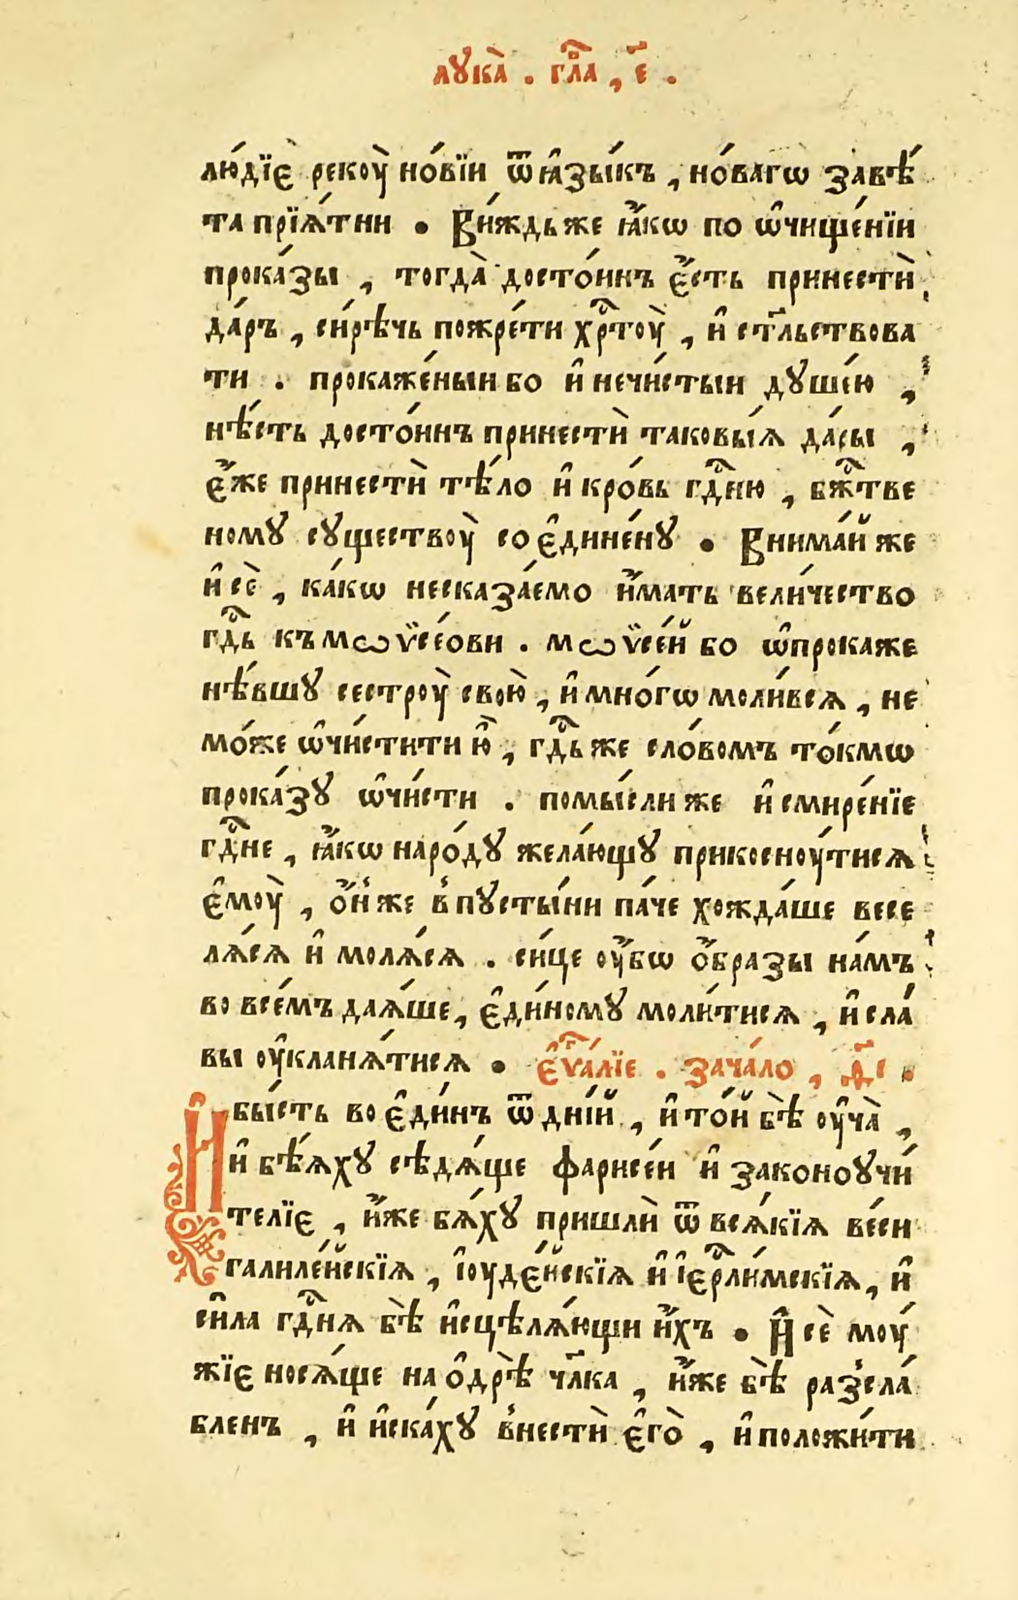 лꙋка̀ . гл҃а , є҃ .
лю́дїє рекоу̀ но́вїи ѿ ꙗ҆зы́къ , но́вагѡ завѣ́
та прїѧ́тни . Ви́ждь же ꙗ҆́кѡ по ѡ҆чище́нїи
прока́зы , тогда̀ досто́инъ є҆́сть принестѝ
да́ръ , си́рѣчь пожре́ти хрⷭ҇тоу̀ , и҆ ст҃льствова
ти . прокаже́ныи бо и҆ нечи́стыи дꙋше́ю ,
нѣ́сть досто́инъ принестѝ таковы́ѧ да́ры ,
є҆́же принестѝ тѣ́ло и҆ кро́вь гдⷭ҇ню , бжⷭ҇тве
номꙋ сꙋществоу̀ со є҆дине́нꙋ . Внима́й же
и҆ сѐ , ка́кѡ несказа́емо и҆́мать вели́чество
гдⷭ҇ь къ мѡѷсе́ови . мѡѷсе́й бо ѡ҆прокаже
нѣ́вшꙋ сестроу̀ свою̀ , и҆ мно́гѡ моли́всѧ , не
мо́же ѡ҆чи́стити ю҆̀ , гдⷭ҇ь же сло́вомъ то́кмѡ
прока́зꙋ ѡ҆чи́сти . помы́сли же и҆ смире́нїе
гдⷭ҇не , ꙗ҆́кѡ наро́дꙋ жела́ющꙋ прикосноу́тисѧ
є҆моу̀ , ѻ҆́н же в пꙋсты́ни па́че хожда́ше весе
лѧ́сѧ и҆ молѧ́сѧ . си́це оу҆́бѡ ѻ҆́бразы на́мъ
во все́мъ даѧ́ше , є҆ди́номꙋ моли́тисѧ , и҆ сла́
вы оу҆кланѧ́тисѧ . є҆ѵⷢ҇а́лїе . зача́ло , д҃і .
И҆ бы́сть во є҆ди́нъ ѿ дні́й , и҆ то́й бѣ̀ оу҆ча̀ ,
и҆ бѣ́ѧхꙋ сѣдѧ́ще фарисе́и и҆ законоꙋчи́
телїє , и҆́же бѧ́хꙋ пришлѝ ѿ всѧ́кїѧ ве́си
галиле́йскїѧ , і҆оуде́йскїѧ и҆ і҆єрⷭ҇ли́мскїѧ , и҆
си́ла гдⷭ҇нѧ бѣ̀ и҆сцѣлѧ́ющи и҆́хъ . И҆ сѐ моу́
жїє носѧ́ще на ѻ҆дрѣ̀ чл҃ка , и҆́же бѣ̀ разсла́
бленъ , и҆ и҆ска́хꙋ внестѝ є҆го̀ , и҆ положи́ти